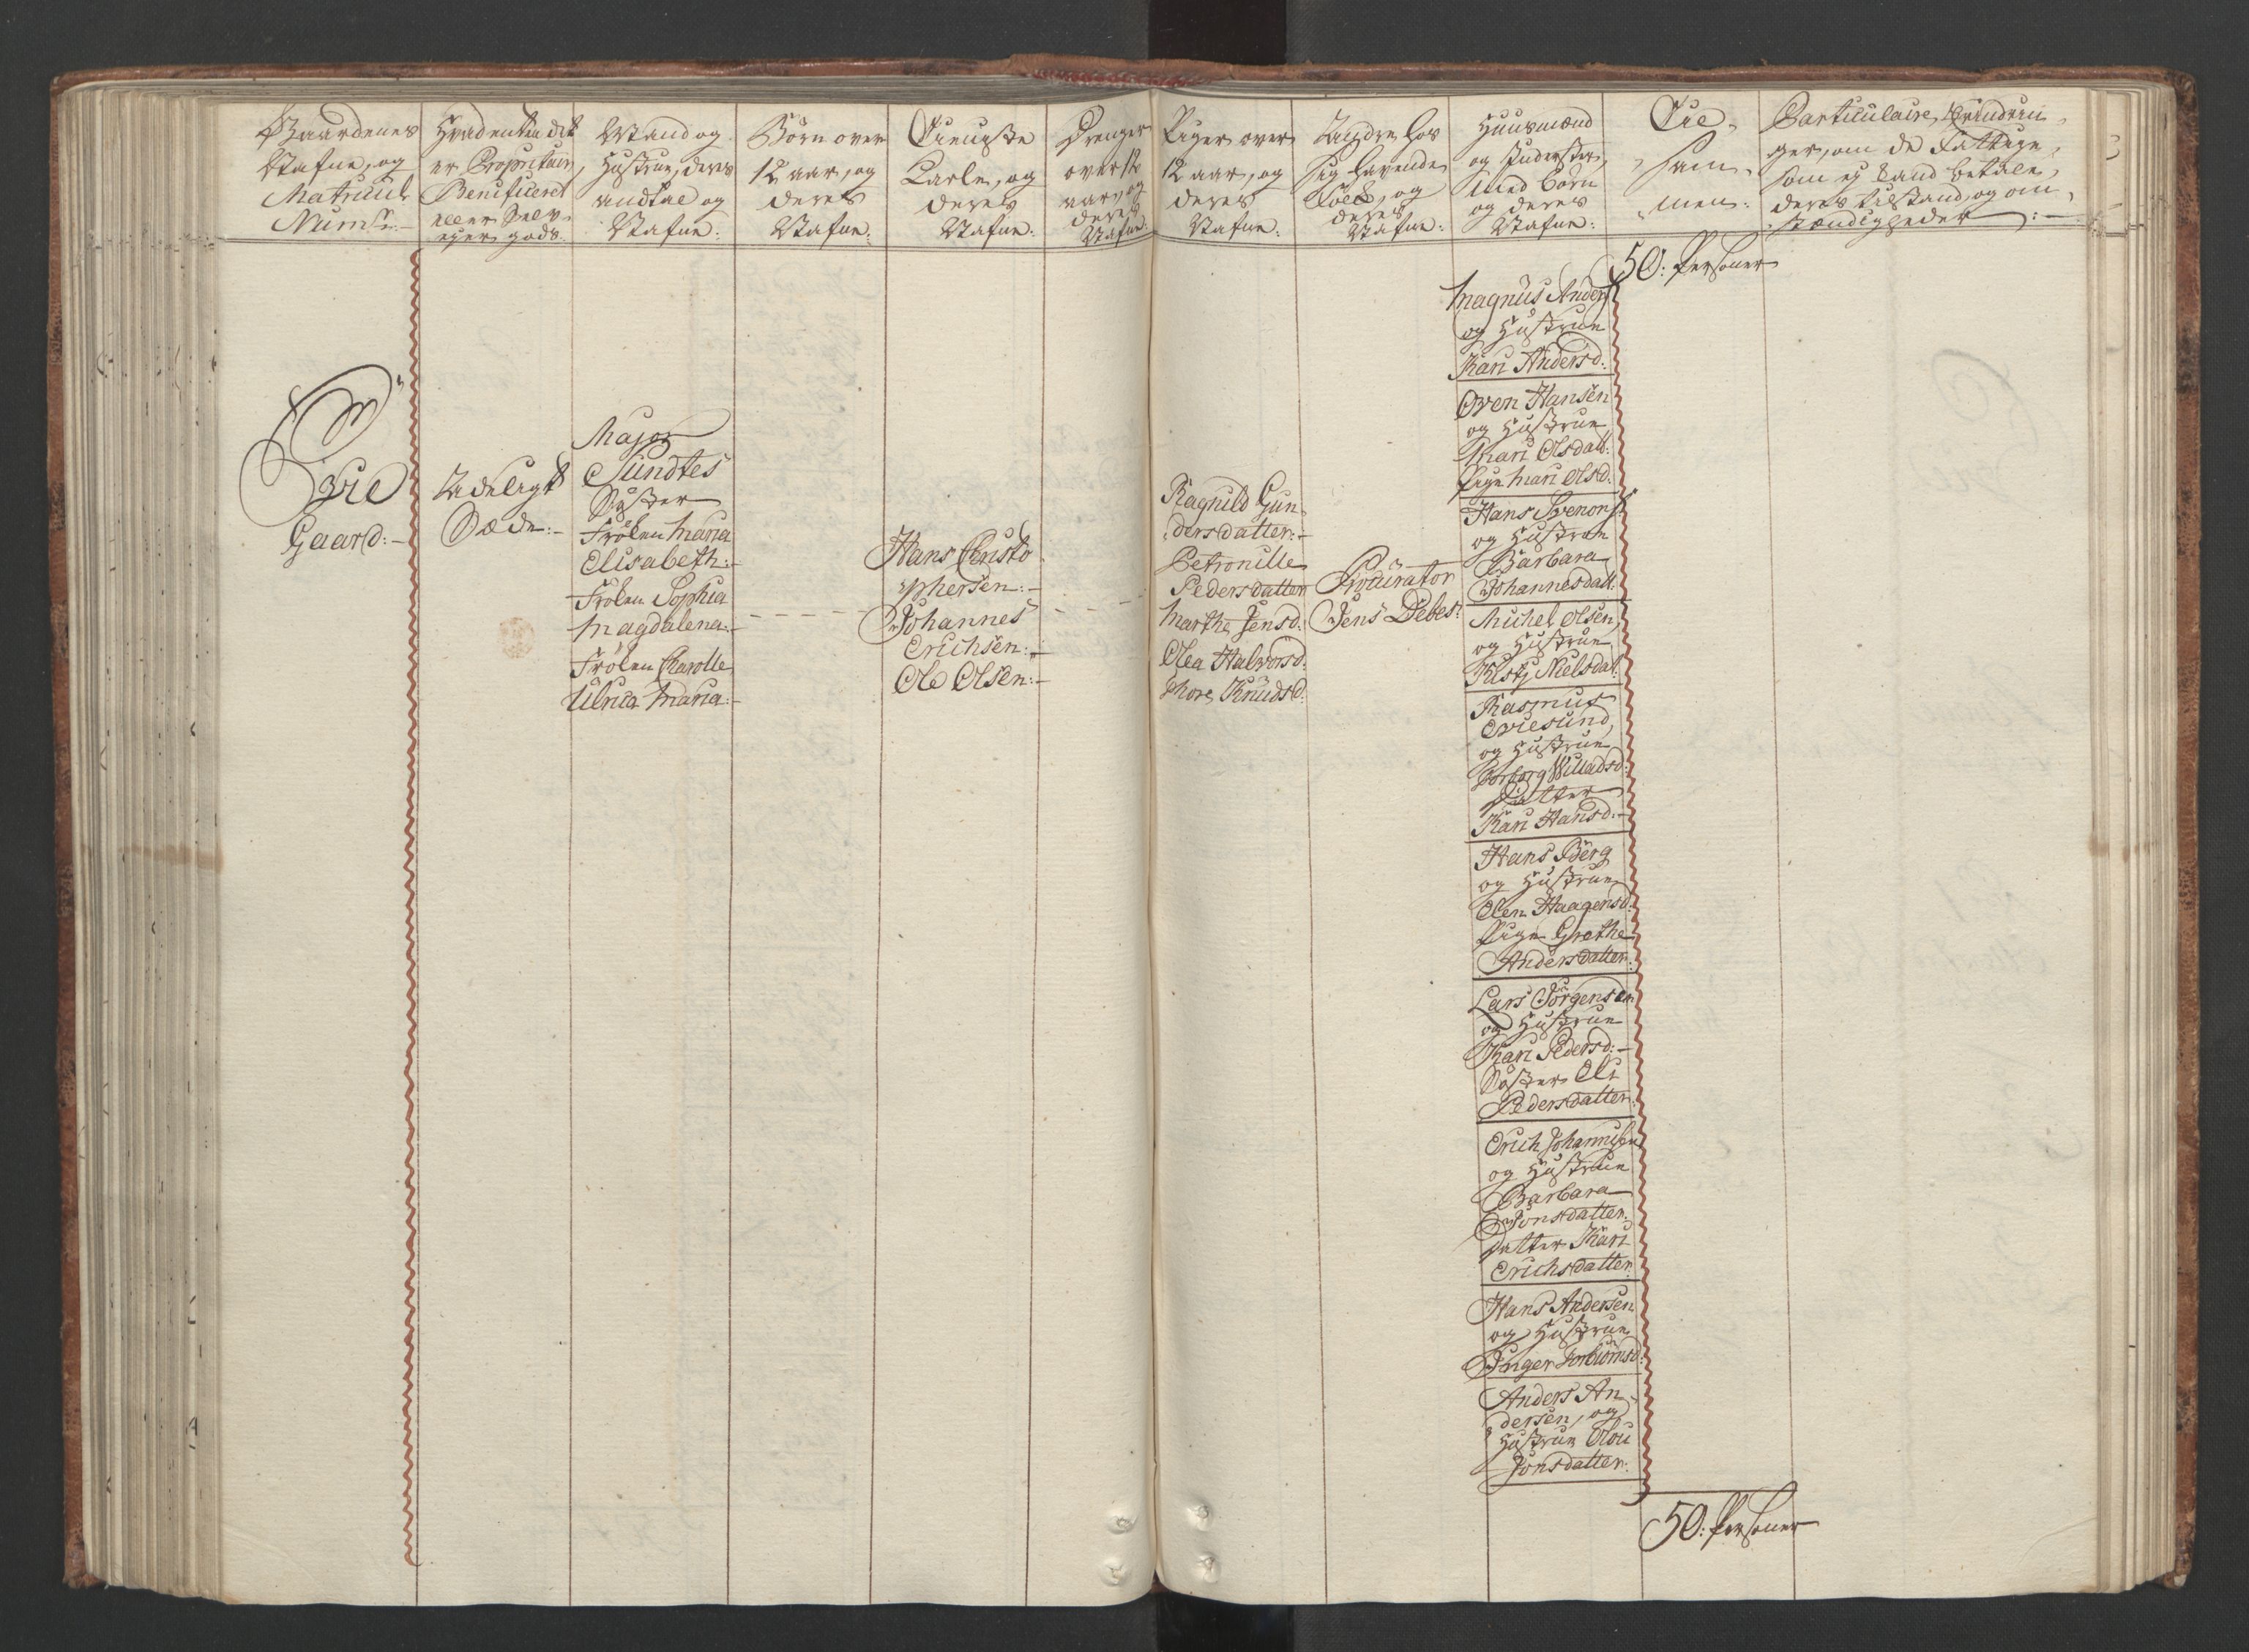 Gaardenes
Nafne, og
Matricul
Numr:
Hvadenten det
er Proprietair,
Beneficeret
eller Selv-
eyer gods.
Mand og
Hustrue, deres
andtal og
Nafne:
Børn over
12 aar, og
deres
Nafne:
Tieniste
Karle, og
deres
Nafne:
Drenger
over 12
aar, og
deres
Nafne:
Piger over
12 aar, og
deres
Nafne:
Andre hos
sig havende
Folk, og
deres
Nafne:
Huusmænd
og Inderster,
med børn
og deres
Nafne:
Til-
sam-
men:
Particulaire Erindrin-
ger, om de Fattige,
som ej kand betale,
deres tilstand, og om-
stændigheder:
50: Persohner
Evie
Gaard:
Adeligt
Sæde:
Major
Sundtes
Søster
Frölen Maria
Elisabeth:
Frölen Sophia
Magdalena:
Frölen Charolle
Ulrica Maria:
Hans Christo-
phersen:
Johannes
Erichsen:
Ole Olsen:
Ragnild Gun-
dersdatter:
Petronille
Pedersdatter
Marthe Jensd:
Olea Halvorsd:
Thore Knudsd:
Procurator
Jens Debes:
Magnus Anders:
og Hustrue
Kari Andersd:
Even Hansen
og Hustrue
Mari Olsdatt:
Pige Mari Olsd:
Hans Svenons:
og Hustrue
Barbara
Johannesdatt:
Michel Olsen,
og Hustrue
Kisty Nielsdat:
Rasmus
Eviesund,
og Hustrue
Torborg Willadsd:
Datter
Kari Hansd:
Hans Berg
og Hustrue
Olen Haagensd:
Pige Grethe
Andersdatter:
Lars Jörgensen
og Hustrue
Kari Pedersd:
Søster Oli
Pedersdatter:
Erich Johannisen
og Hustrue
Barbara
Jonsdatter:
Datter Kari
Erichsdatter:
Hans Andersen
og Hustrue
Inger Torbiörnsd:
Anders An-
dersen, og
Hustrue Olou
Jonsdatter:
50: Persohner